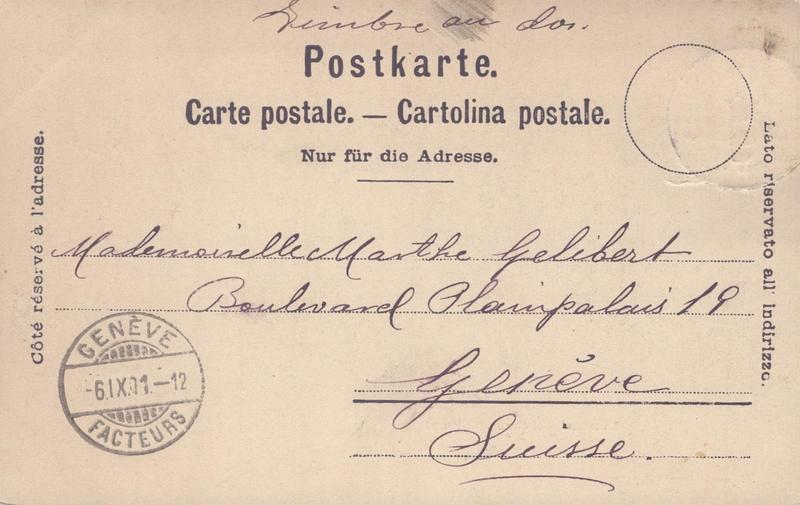 Timbre au dos.
Postkarte.
Carte postale. — Cartolina postale.
Nur für die Adresse.
Côté réservé à l'adresse.
Lato riservato all' indirizzo.
Mademoiselle Marthe Gelibert
Boulevard Plainpalais 19
Genève
Suisse.
GENÈVE
-6.IX.01.-12
FACTEURS